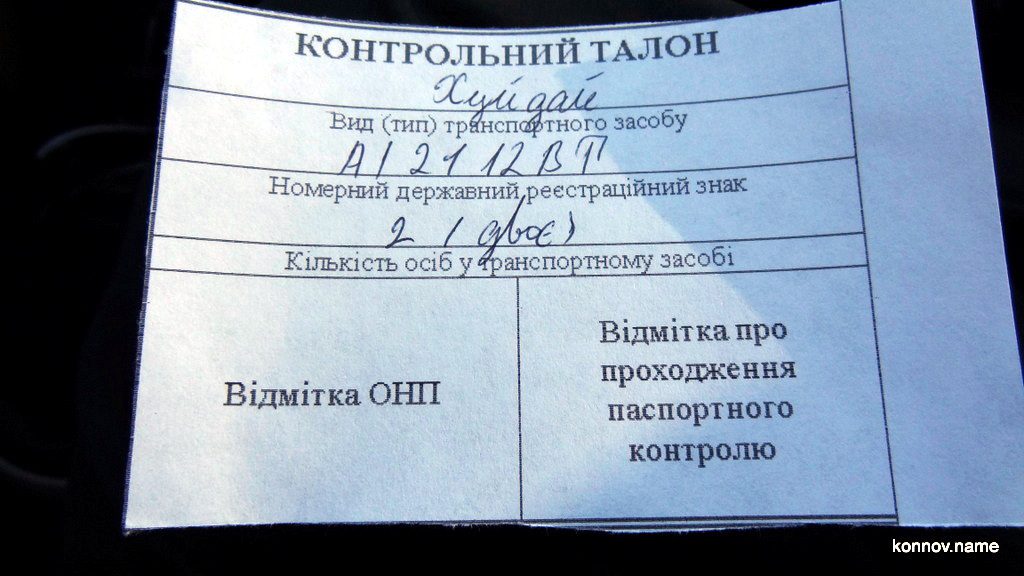 КОНТРОЛЬНИЙ ТАЛОН
Хуйдай
Вид (тип) транспортного засобу
АІ 2112 ВТ
Номерний державний реєстраційний знак
2 (двоє)
Кількість осіб у транспортному засобі
Відмітка ОНП
Відмітка про
проходження
паспортного
контролю
konnov.name